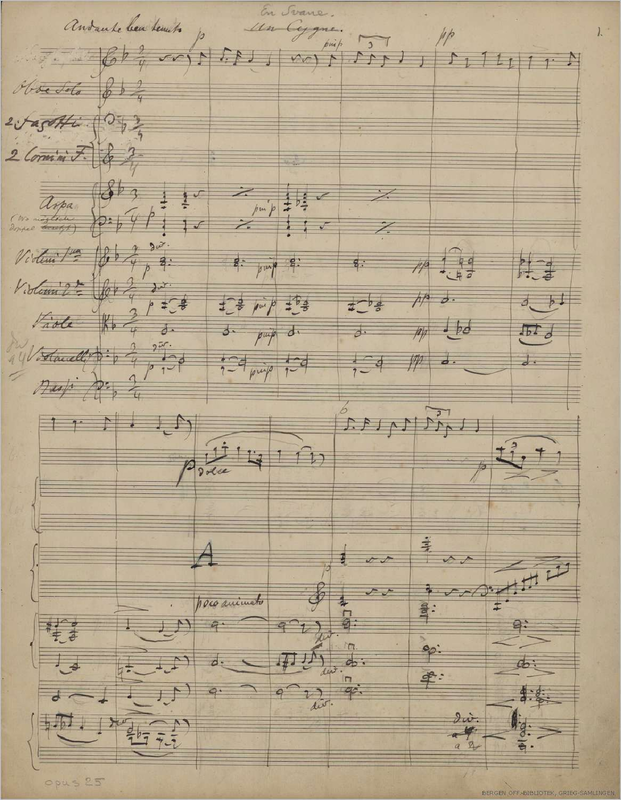 En Svane.
Un Cygne.
Andante ben tenuto
p
pp
1.
Oboe Solo
2 Fagotti
2 Corni in F.
Arpa
Violini 1mi
Violini 2di
Viole
Violoncelli
Bassi
div.
p
pp
3
6
p
dolce
A
poco animato
div.
div.
a 2
opus 25
BERGEN OFF. BIBLIOTEK, GRIEG-SAMLINGEN